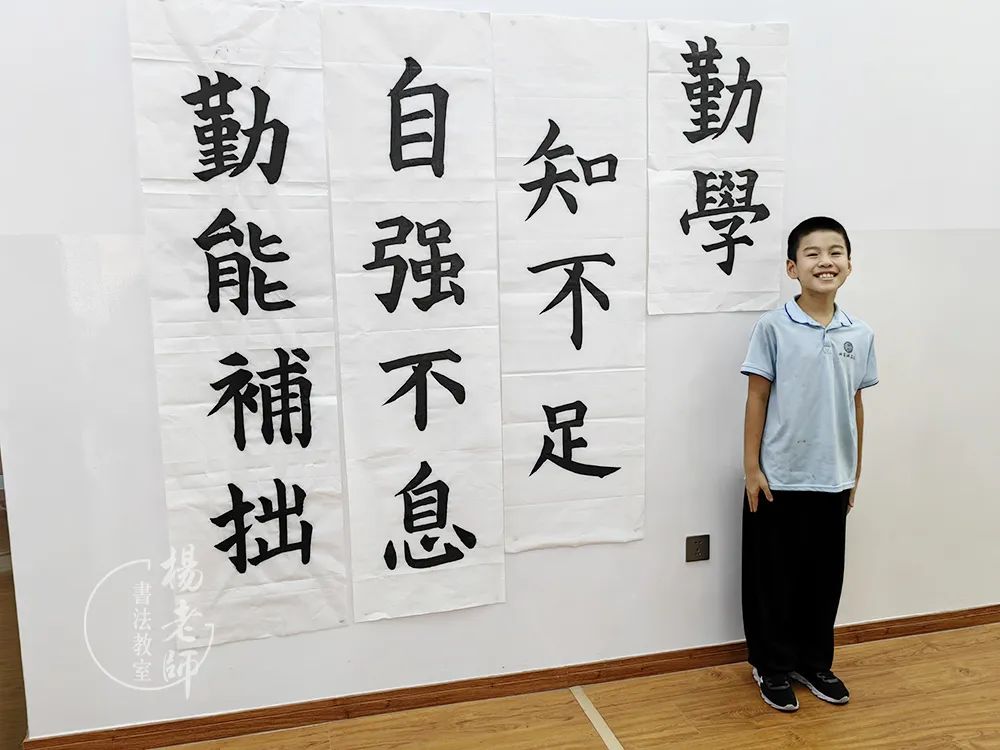 勤學
知不足
自强不息
勤能補拙
楊老師
書法教室